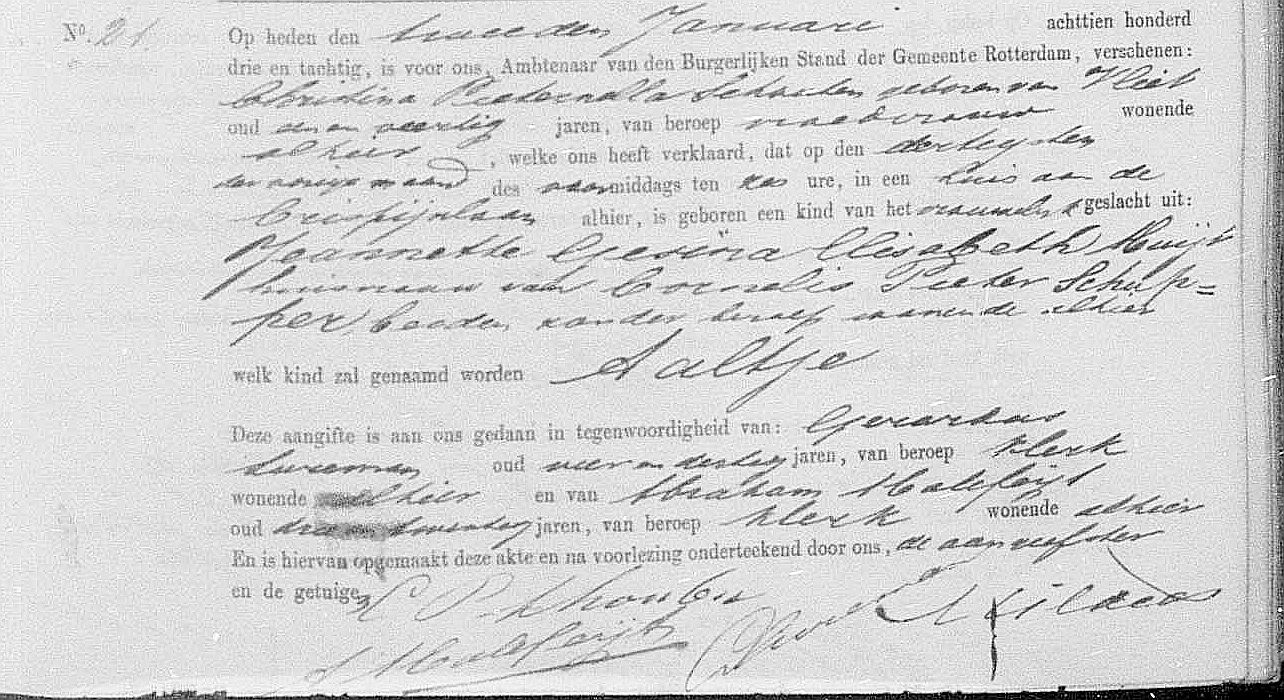 No. 21.
Op heden den tweeden Januari achttien honderd
drie en tachtig, is voor ons, Ambtenaar van den Burgerlijken Stand der Gemeente Rotterdam, verschenen:
Christina Pieternella Scholten geboren van Vliet
oud een en veertig jaren, van beroep vroedvrouw wonende
alhier, welke ons heeft verklaard, dat op den dertigsten
der vorige maand des voormiddags ten zes ure, in een huis aan de
Crispijnlaan alhier, is geboren een kind van het vrouwelijk geslacht uit:
Jeannette Gerina Elisabeth Kuijt
huisvrouw van Cornelis Pieter Schip=
per beiden zonder beroep wonende alhier
welk kind zal genaamd worden Aaltje
Deze aangifte is aan ons gedaan in tegenwoordigheid van: Gerardus
oud vier en dertig jaren, van beroep klerk
wonende alhier en van Abraham Maleprijt
oud drie en twintig jaren, van beroep klerk wonende alhier
En is hiervan opgemaakt deze akte en na voorlezing onderteekend door ons, de aangeefster
en de getuigen